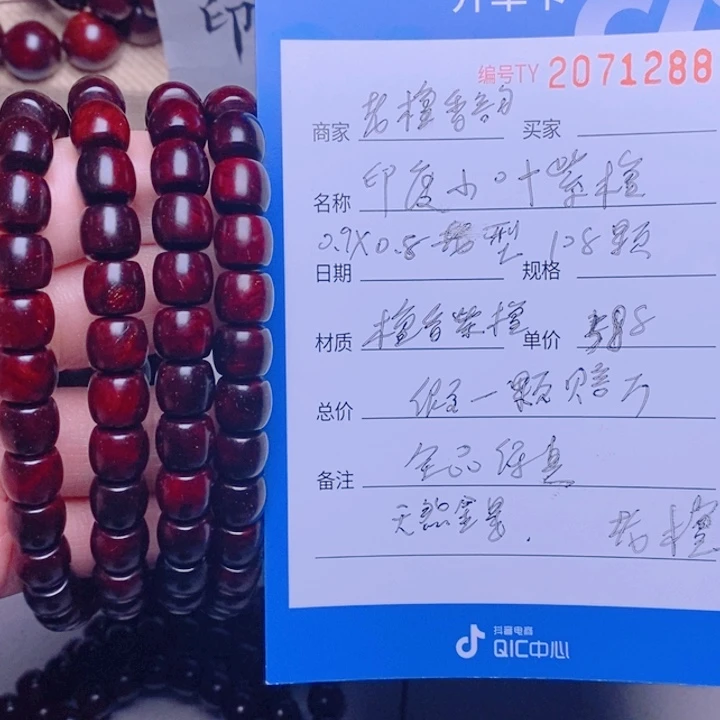 印
编号TY 2071288
商家 老檀香韵 买家
名称 印度小叶紫檀
0.9X0.8 型 108颗
日期 规格
材质 檀香紫檀 单价 588
总价 假一颗赔万
备注 全品保真
老檀
抖音电商
QIC中心